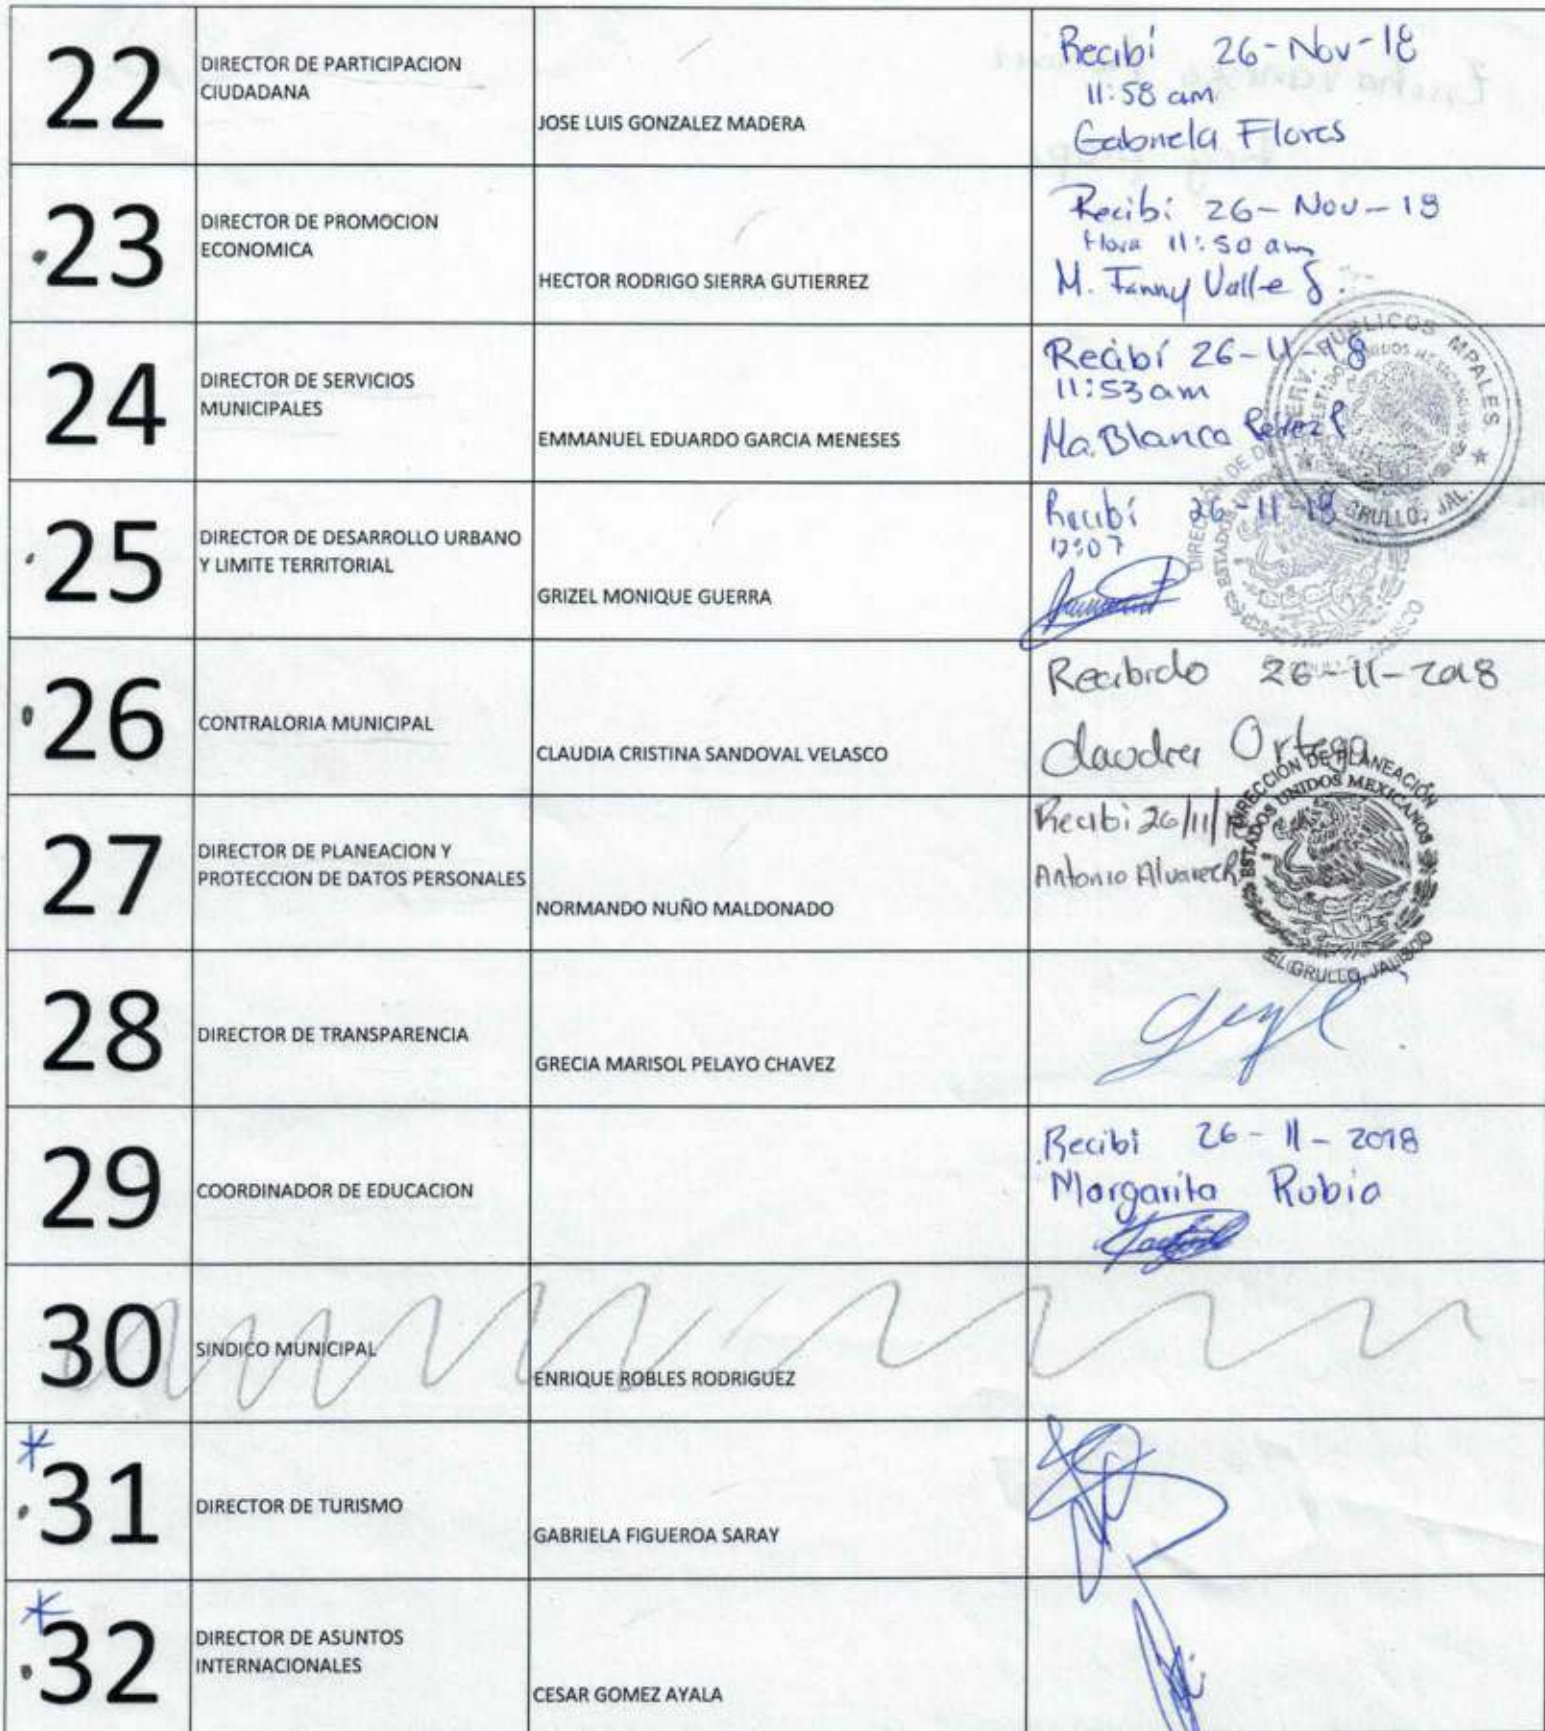 22
DIRECTOR DE PARTICIPACION
CIUDADANA
JOSE LUIS GONZALEZ MADERA
Recibí 26-Nov-18
11:58 am
Gabriela Flores
23
DIRECTOR DE PROMOCION
ECONOMICA
HECTOR RODRIGO SIERRA GUTIERREZ
Recibi 26-Nov-18
Hora 11:50 am
M. Fanny Valle
24
DIRECTOR DE SERVICIOS
MUNICIPALES
EMMANUEL EDUARDO GARCIA MENESES
Recibí 26-11-18
11:53 am
Ma. Blanca Pérez P
SERV. PUBLICOS MPALES
GRULLO, JAL.
25
DIRECTOR DE DESARROLLO URBANO
Y LIMITE TERRITORIAL
GRIZEL MONIQUE GUERRA
Recibí 26-11-18
12:07
26
CONTRALORIA MUNICIPAL
CLAUDIA CRISTINA SANDOVAL VELASCO
Recibido 26-11-2018
Claudia Ortega
27
DIRECTOR DE PLANEACION Y
PROTECCION DE DATOS PERSONALES
NORMANDO NUÑO MALDONADO
Recibi 26/11/
Antonio
DIRECCIÓN DE PLANEACIÓN
ESTADOS UNIDOS MEXICANOS
EL GRULLO, JALISCO
28
DIRECTOR DE TRANSPARENCIA
GRECIA MARISOL PELAYO CHAVEZ
29
COORDINADOR DE EDUCACION
Recibi 26-11-2018
Margarita Rubio
30
SINDICO MUNICIPAL
ENRIQUE ROBLES RODRIGUEZ
31
DIRECTOR DE TURISMO
GABRIELA FIGUEROA SARAY
32
DIRECTOR DE ASUNTOS
INTERNACIONALES
CESAR GOMEZ AYALA